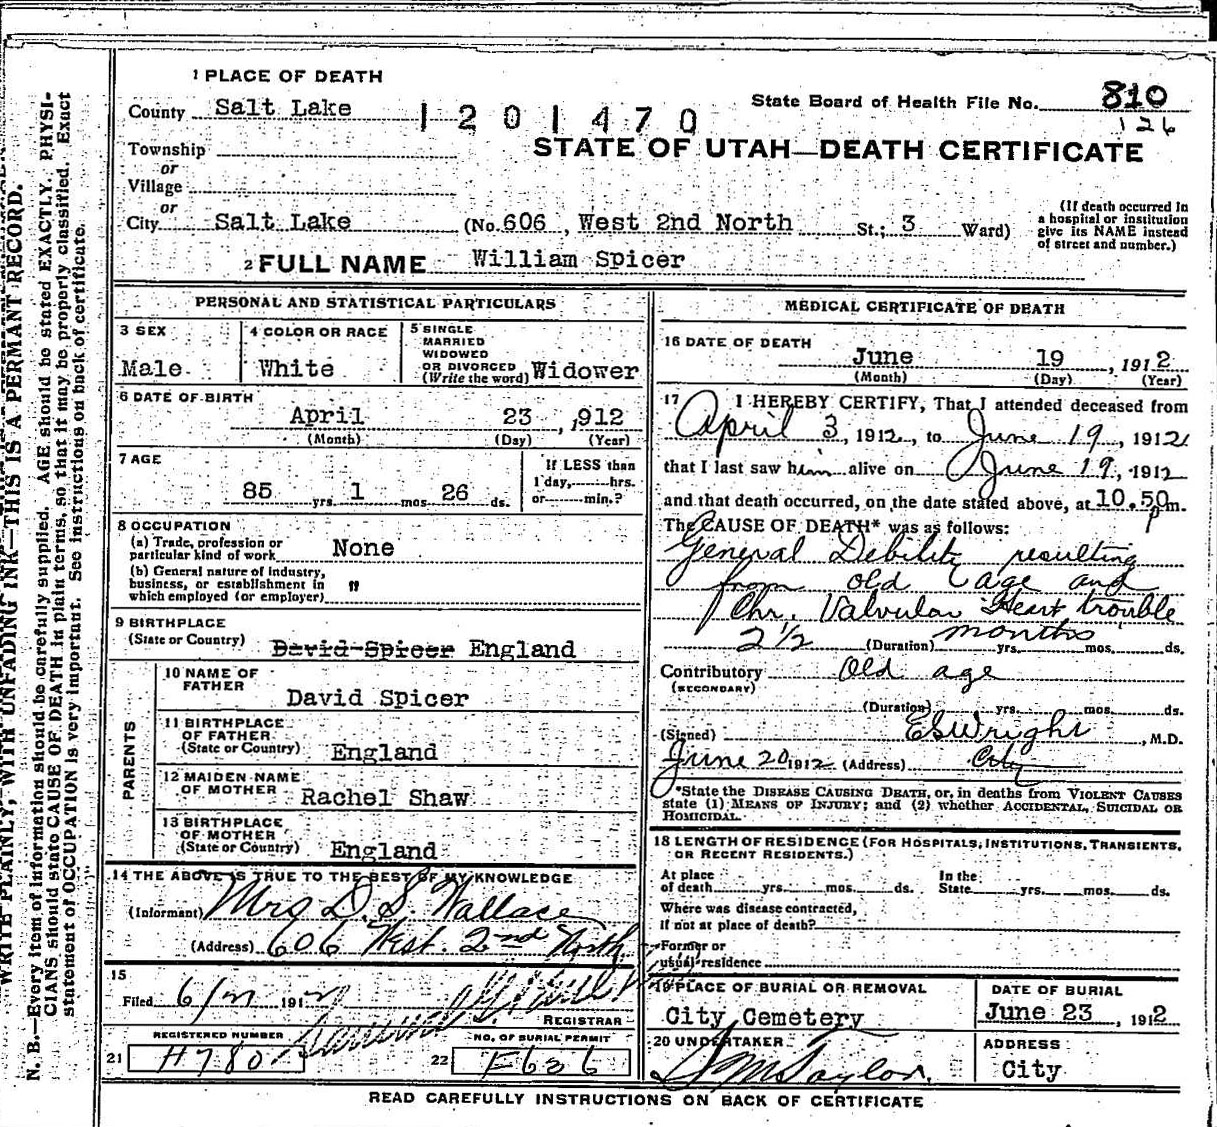 1 PLACE OF DEATH
County Salt Lake
1201470
State Board of Health File No. 810
126
Township
STATE OF UTAH—DEATH CERTIFICATE
or
Village
or
City Salt Lake (No. 606, West 2nd North St.; 3 Ward)
(If death occurred in
a hospital or institution
give its NAME instead
of street and number.)
2 FULL NAME William Spicer
PERSONAL AND STATISTICAL PARTICULARS
3 SEX
Male
4 COLOR OR RACE
White
5 SINGLE
MARRIED
WIDOWED
OR DIVORCED
(Write the word) Widower
6 DATE OF BIRTH
April 23, 1912
(Month) (Day) (Year)
7 AGE
85 yrs. 1 mos. 26 ds.
If LESS than
1 day, hrs.
or min.?
8 OCCUPATION
(a) Trade, profession or
particular kind of work None
(b) General nature of industry,
business, or establishment in
which employed (or employer) "
9 BIRTHPLACE
(State or Country) David Spicer England
PARENTS
10 NAME OF
FATHER
David Spicer
11 BIRTHPLACE
OF FATHER
(State or Country) England
12 MAIDEN NAME
OF MOTHER
Rachel Shaw
13 BIRTHPLACE
OF MOTHER
(State or Country) England
14 THE ABOVE IS TRUE TO THE BEST OF MY KNOWLEDGE
(Informant) Mrs D. S. Wallace
(Address) 606 West. 2nd North
15
Filed 6/21 1912
REGISTRAR
REGISTERED NUMBER
21 H780
NO. OF BURIAL PERMIT
22 F626
MEDICAL CERTIFICATE OF DEATH
16 DATE OF DEATH
June 19, 1912
(Month) (Day) (Year)
17 I HEREBY CERTIFY, That I attended deceased from
April 3, 1912, to June 19, 1912
that I last saw him alive on June 19, 1912
and that death occurred, on the date stated above, at 10.50 p m.
The CAUSE OF DEATH* was as follows:
General Debility resulting
from old age and
Chr. Valvular Heart trouble
2 1/2 (Duration) months yrs. mos. ds.
Contributory Old age
(SECONDARY)
(Duration) yrs. mos. ds.
(Signed) E S Wright, M.D.
June 20 1912 (Address) City
*State the DISEASE CAUSING DEATH, or, in deaths from VIOLENT CAUSES
state (1) MEANS OF INJURY; and (2) whether ACCIDENTAL, SUICIDAL OR
HOMICIDAL.
18 LENGTH OF RESIDENCE (FOR HOSPITALS, INSTITUTIONS, TRANSIENTS,
OR RECENT RESIDENTS.)
At place
of death yrs. mos. ds.
In the
State yrs. mos. ds.
Where was disease contracted,
if not at place of death?
Former or
usual residence
19 PLACE OF BURIAL OR REMOVAL
City Cemetery
DATE OF BURIAL
June 23, 1912
20 UNDERTAKER
S M Taylor.
ADDRESS
City
READ CAREFULLY INSTRUCTIONS ON BACK OF CERTIFICATE
WRITE PLAINLY, WITH UNFADING INK—THIS IS A PERMANT RECORD.
N. B.—Every item of information should be carefully supplied. AGE should be stated EXACTLY. PHYSI-
CIANS should state CAUSE OF DEATH in plain terms, so that it may be properly classified. Exact
statement of OCCUPATION is very important. See instructions on back of certificate.